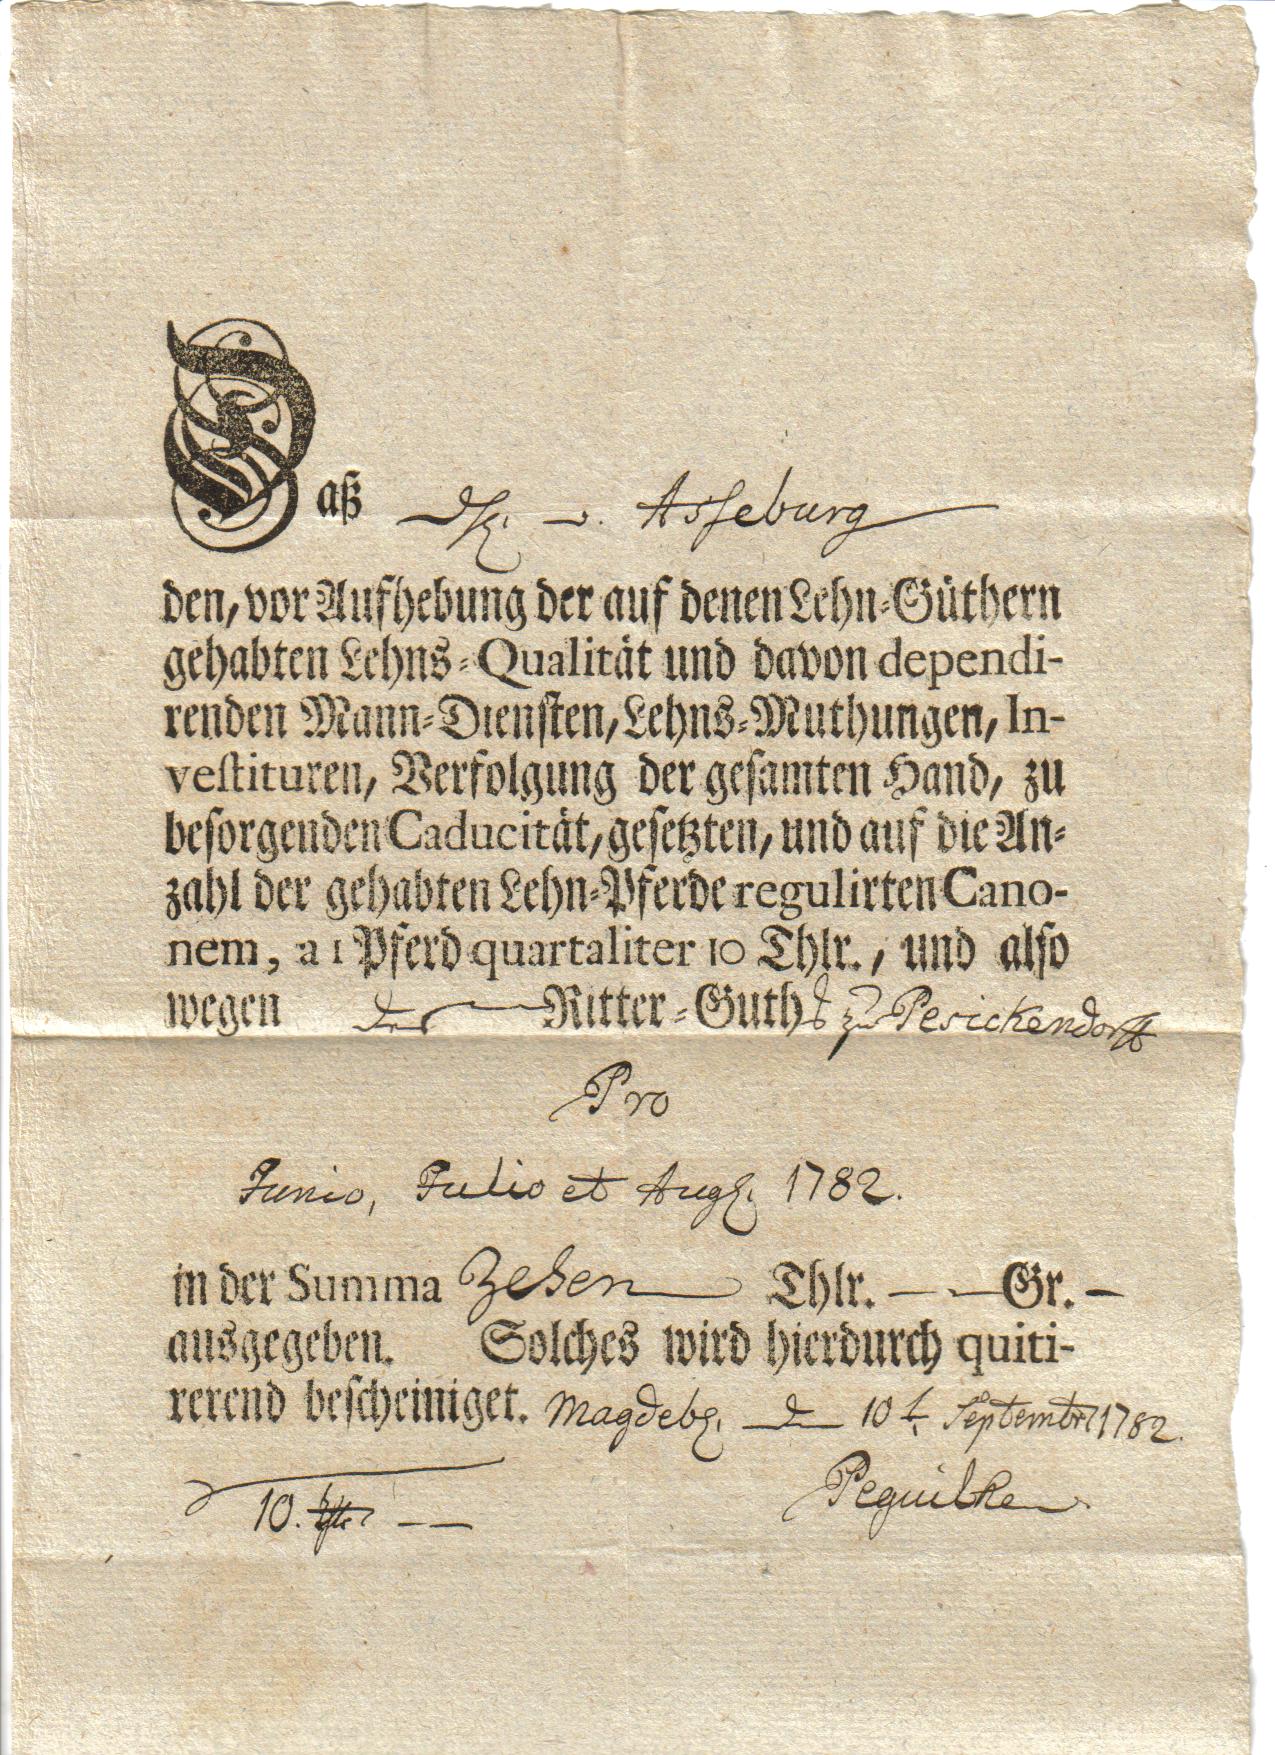 Daß v. Asseburg
den, vor Aufhebung der auf denen Lehn-Güthern
gehabten Lehns-Qualität und davon dependi-
renden Mann-Diensten, Lehns-Muthungen, In-
vestituren, Verfolgung der gesamten Hand, zu
besorgenden Caducität, gesetzten, und auf die An-
zahl der gehabten Lehn-Pferde regulirten Cano-
nem, a 1 Pferd quartaliter 10 Thlr., und also
wegen des Ritter-Guths zu Pesickendorff
Pro
Junio, Julio et Aug. 1782.
in der Summa Zehen Thlr. — — Gr. —
ausgegeben. Solches wird hierdurch quiti-
rerend bescheiniget. Magdebg. d 10t. Septembr 1782.
10. — — Peguilhen